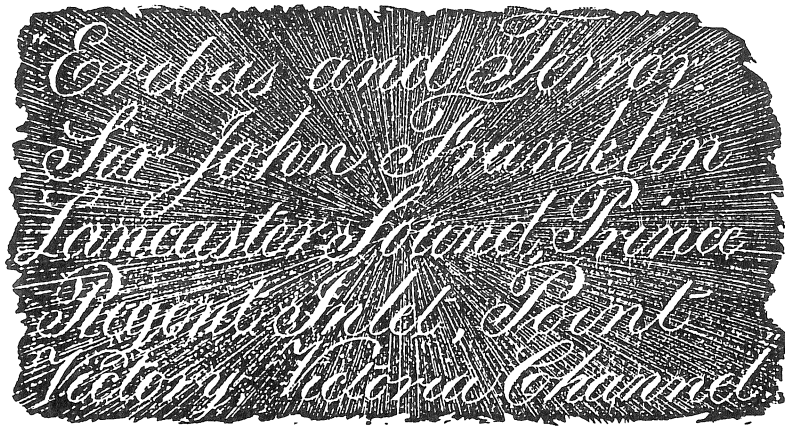 "Erebus and Terror.
Sir John Franklin
Lancaster Sound, Prince
Regent Inlet, Point
Victory, Victoria Channel.